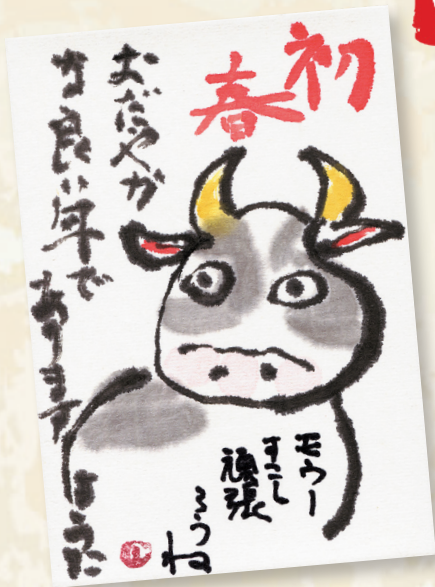 初春
おだやか
な良い年で
あります
ように
モウー
すこし
頑張
ろう
ね